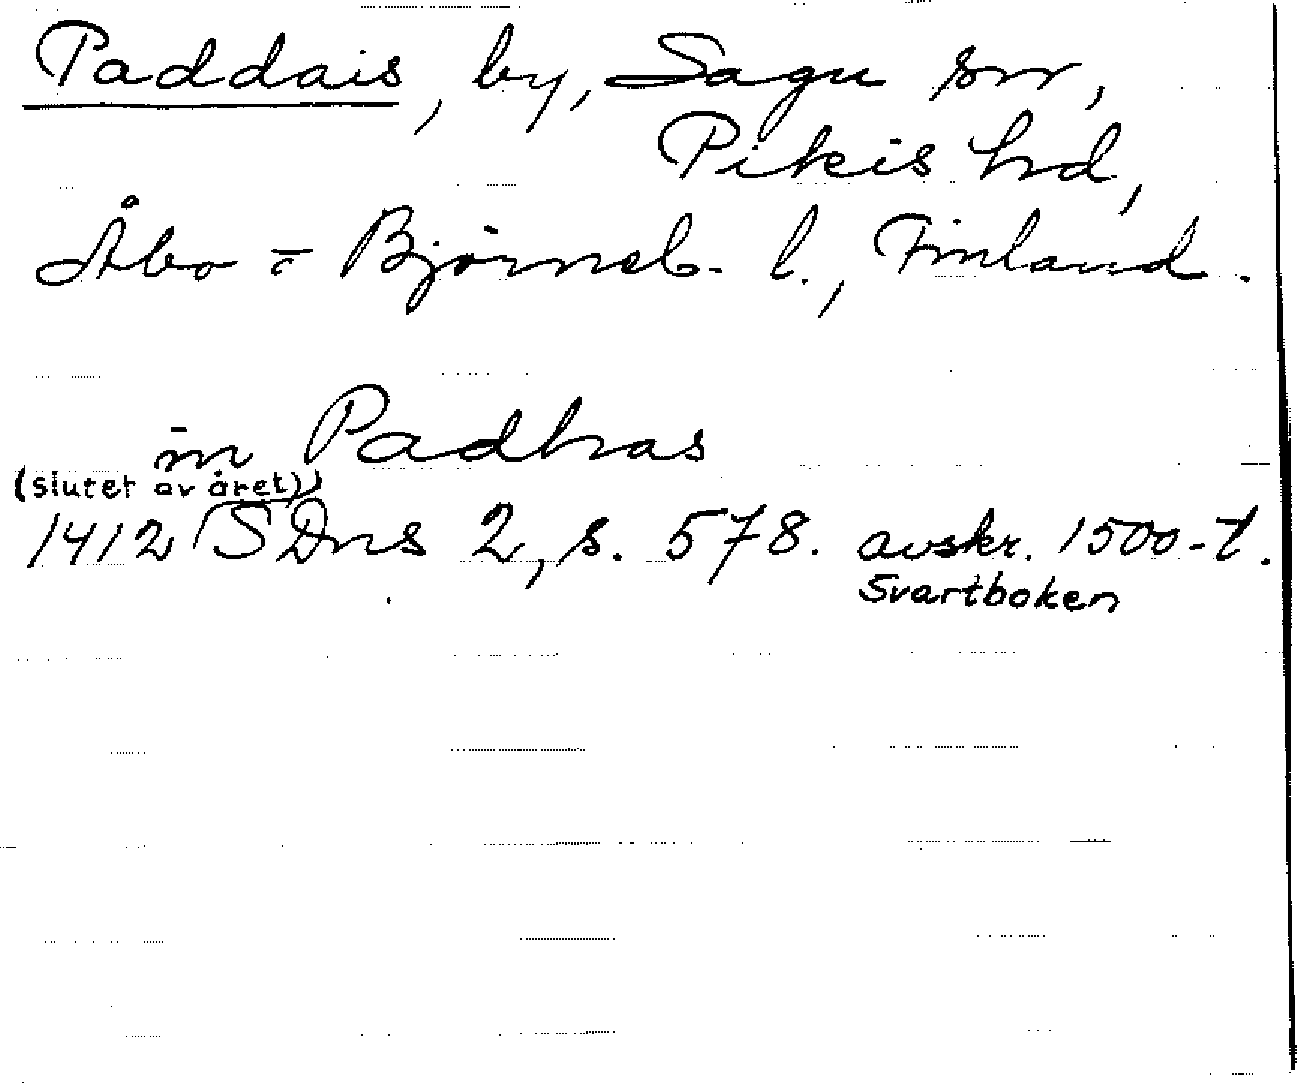 Paddais, by, Sagu sn,
Pikis hd,
Åbo - o Björneb. l., Finland.
in Padhas
(slutet av året)
1412 SDns 2, s. 578. avskr. 1500-t.
Svartboken